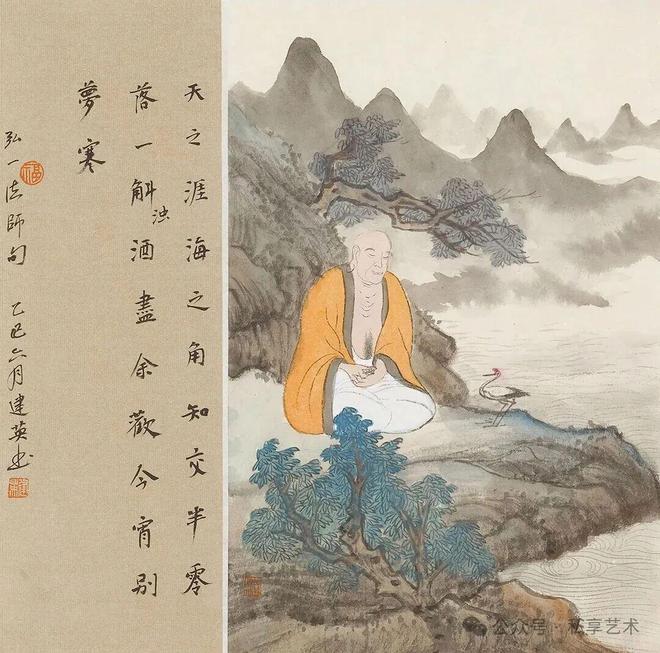 天之涯海之角知交半零
落一斛浊酒盡余歡今宵别
夢寒
弘一法師句 乙巳六月建英书
福
公众号 · 私享艺术